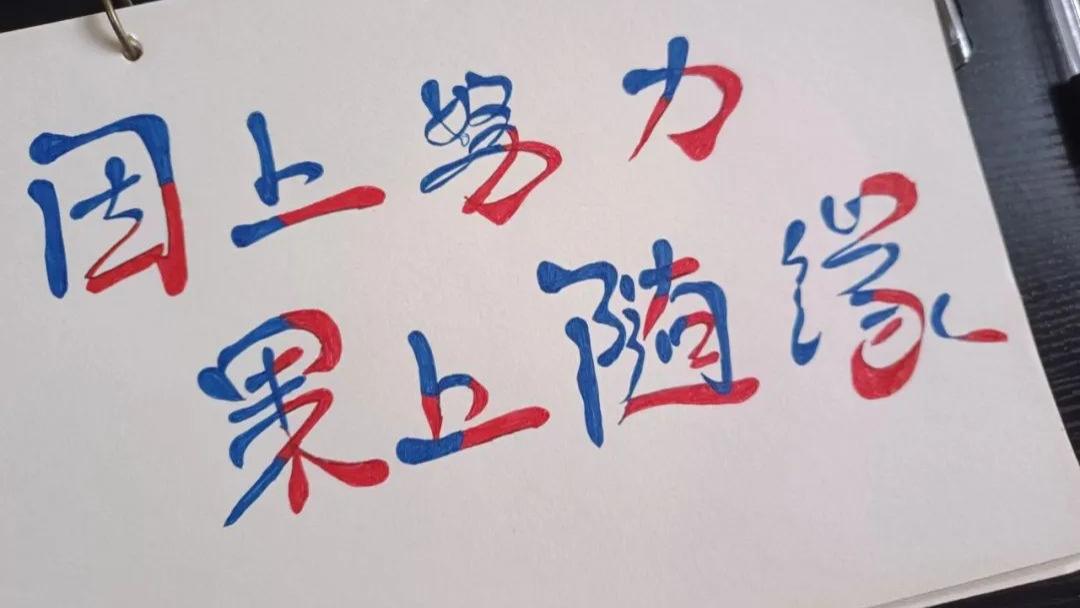 因上努力
果上随缘